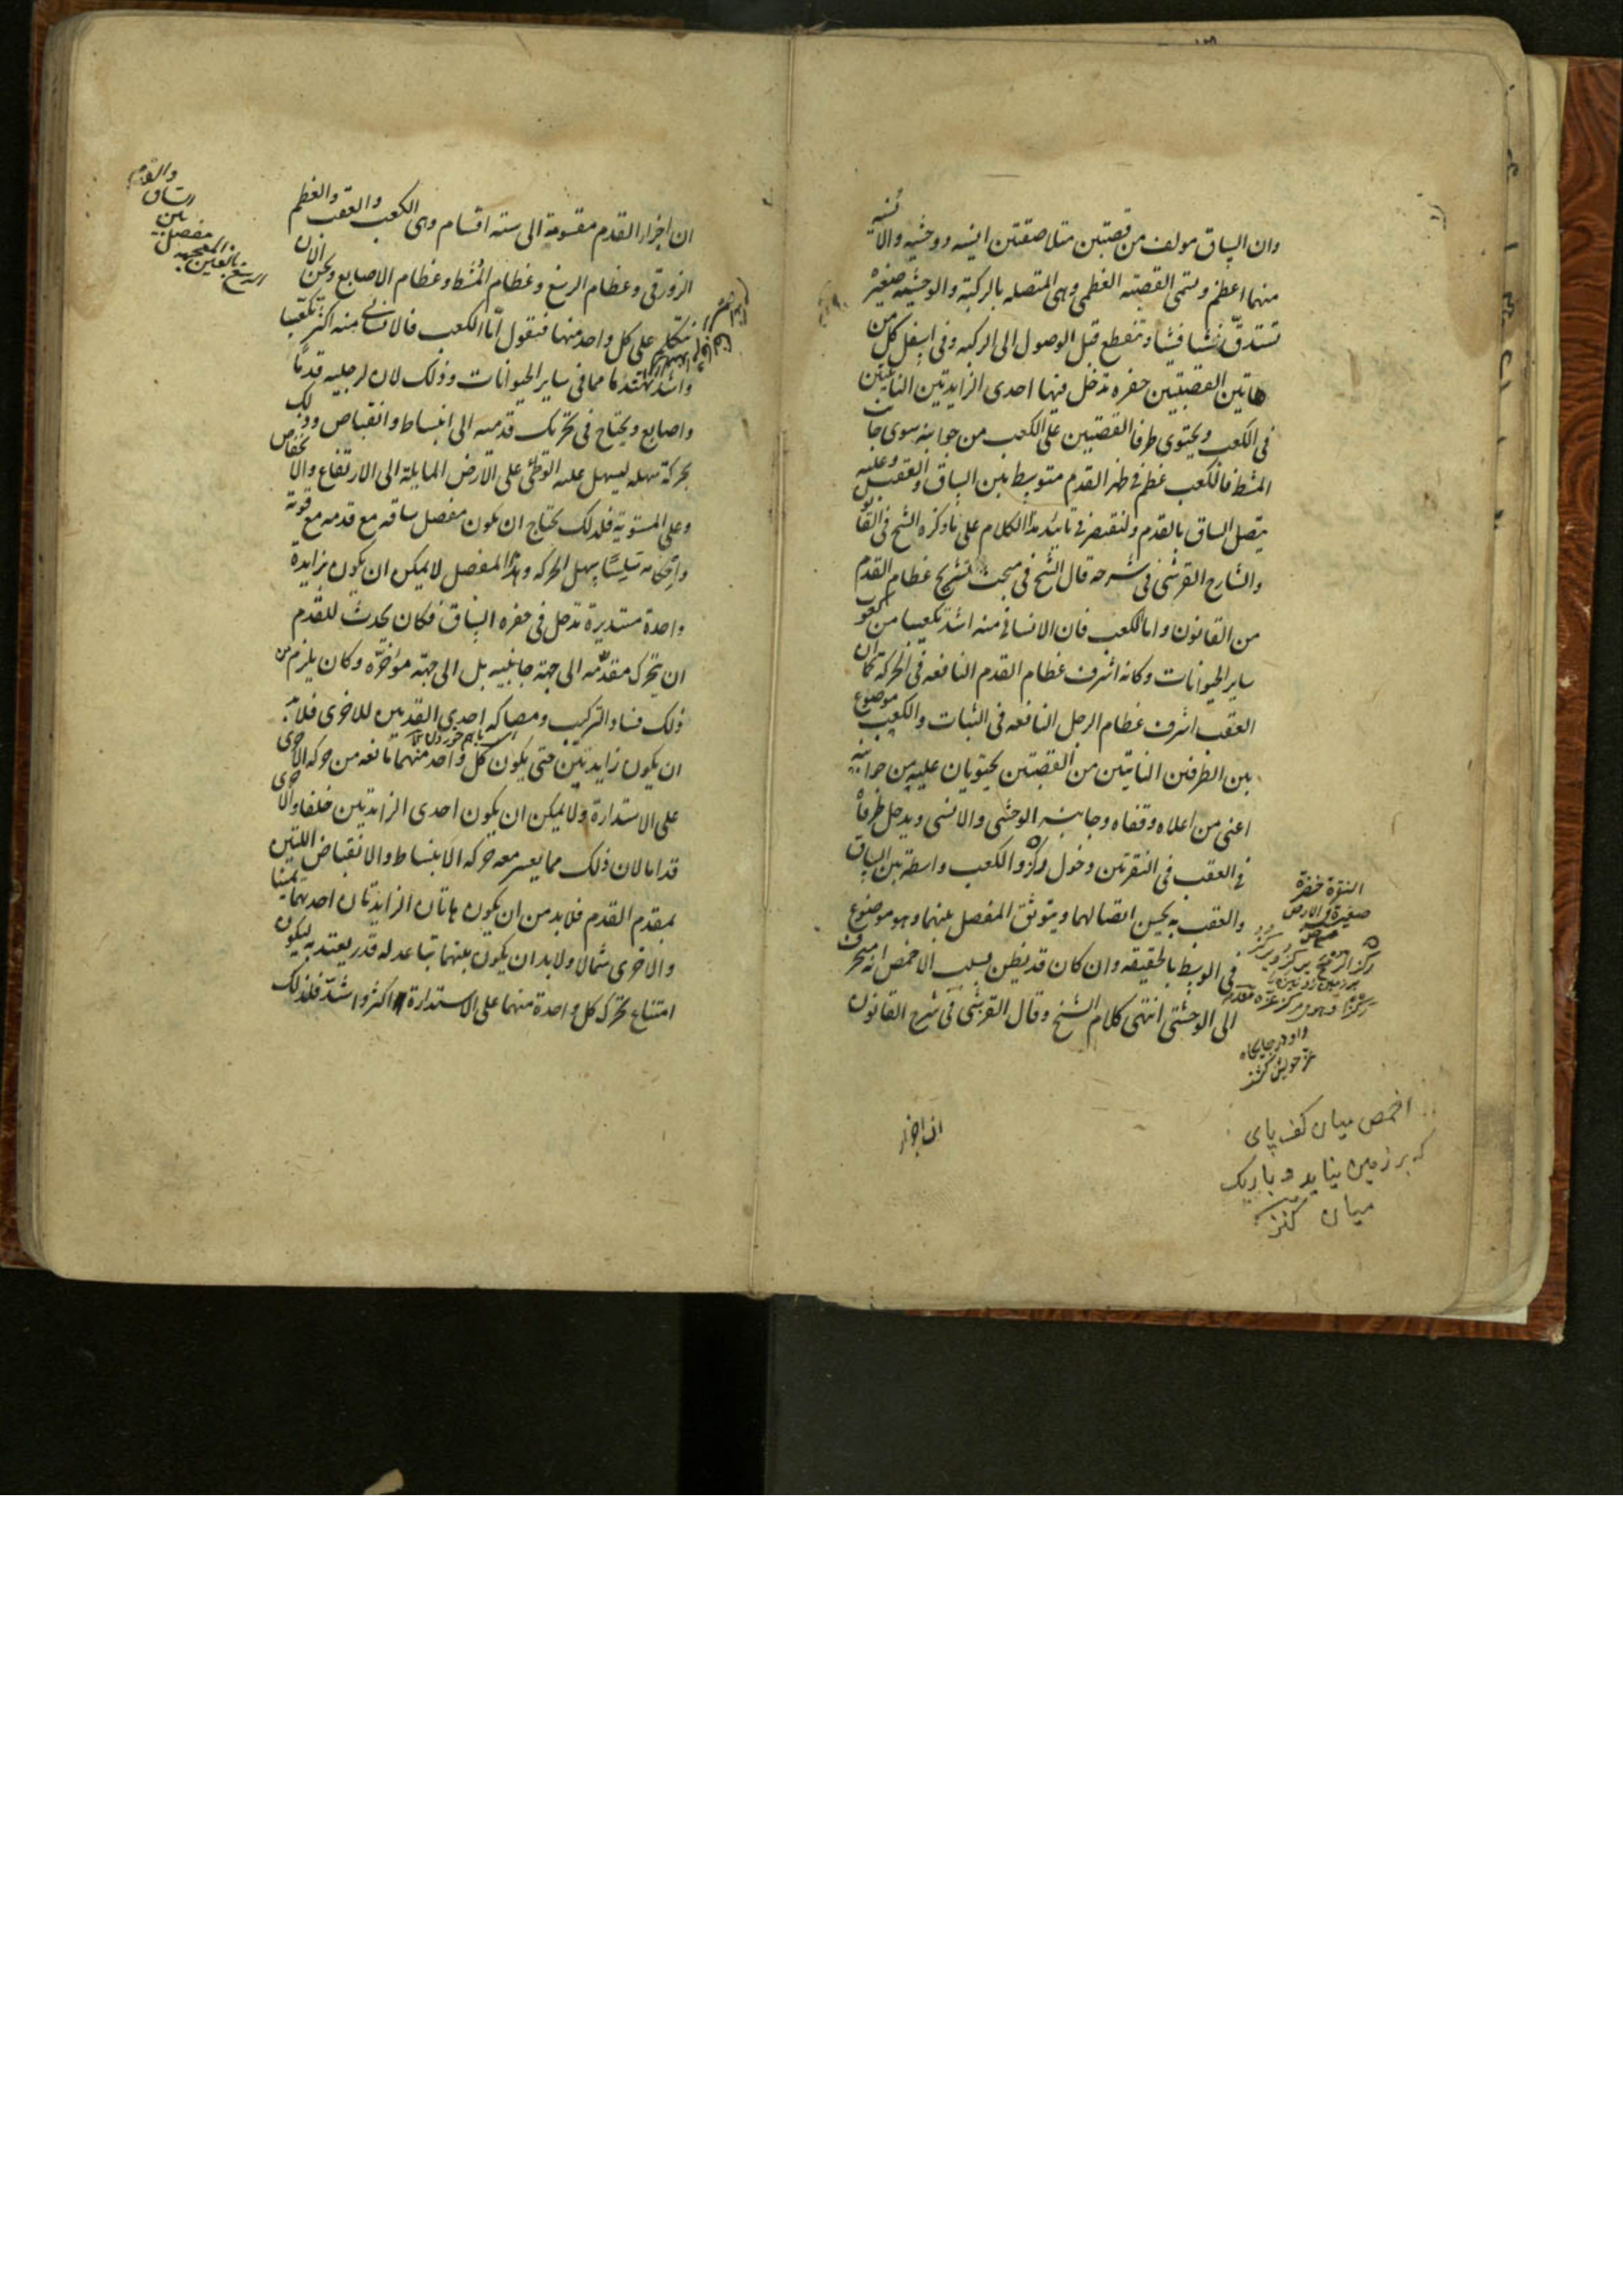 وان الساق مولف من قصبتين متلاصقتين انسيه ووحشيه والانسيه
منهما اعظم وتسمى القصبة العظمى وهى المتصله بالركبة والوحشيه صغيرة
تستدق شيئا فشيئا وتنقطع قبل الوصول الى الركبه وفى اسفل كل من
هاتين القصبتين حفره تدخل فيها احدى الزايدتين الناتيتين
فى الكعب ويحتوى طرفا القصبتين على الكعب من جوانبه سوى جانب
المشط فالكعب عظم فى ظهر القدم متوسط بين الساق والعقب وعليه
يتصل الساق بالقدم ولنقتصر فى تائيد هذا الكلام على ما ذكره الشيخ فى القانون
والشارح القرشى فى شرحه قال الشيخ فى مبحث تشريح عظام القدم
من القانون واما الكعب فان الانسانى منه اشد تكعيبا من كعوب
ساير الحيوانات وكانه اشرف عظام القدم النافعه فى الحركة كما ان
العقب اشرف عظام الرجل النافعه فى الثبات والكعب موضوع
بين الطرفين الناتيين من القصبتين يحتويان عليه من جوانبه
اعنى من اعلاه وقفاه وجانبيه الوحشى والانسى ويدخل طرفاه
فى العقب فى النقرتين دخول ركز والكعب واسطة بين الساق
والعقب به يحسن اتصالهما ويتوثق المفصل بينهما وهو موضوع
فى الوسط بالحقيقه وان كان قد يظن بسبب الاخمص انه منحرف
الى الوحشى انتهى كلام الشيخ وقال القرشى فى شرح القانون
النقرة حفرة
صغيرة فى الارض
ركز الرمح يركزه ويركز
اخمص ميان كف پاى
كه بر زمين نيايد و باريك
ميان كنز
ان اجزاء
ان اجزاء القدم مقسومة الى ستة اقسام وهى الكعب والعقب والعظم
الزورقى وعظام الرسغ وعظام المشط وعظام الاصابع ونحن الان
نتكلم على كل واحد منها فنقول اما الكعب فالانسانى منه اكثر تكعبا
واشد تهندما مما فى ساير الحيوانات وذلك لان لرجليه قدما
واصابع ويحتاج فى تحريك قدميه الى انبساط وانقباض وذلك
بحركة سهله ليسهل عليه التوطى على الارض المايلة الى الارتفاع والانخفاض
وعلى المستوية فلذلك يحتاج ان يكون مفصل ساقه مع قدمه مع قوته
واحكامه سلسا سهل الحركه وهذا المفصل لا يمكن ان يكون بزايدة
واحدة مستديرة تدخل فى حفره الساق فكان يحدث للقدم
ان يتحرك مقدمه الى جهة جانبيه بل الى جهة مؤخره وكان يلزم من
ذلك فساد التركيب ومصاكه احدى القدمين للاخرى فلابد
ان يكون زايدتين حتى يكون كل واحد منهما مانعه من حركه الاخرى
على الاستدارة ولا يمكن ان يكون احدى الزايدتين خلفا والاخرى
قداما لان ذلك مما يعسر معه حركه الانبساط والانقباض اللتين
بمقدم القدم فلابد من ان يكون هاتان الزايدتان احدهما يمينا
والاخرى شمالا ولابد ان يكون بينهما تباعد له قدر يعتد به ليكون
امتناع تحرك كل واحدة منهما على الاستدارة اكثر واشد فلذلك
الرسغ بالغين المعجمه
مفصل
بين
الساق
والقدم